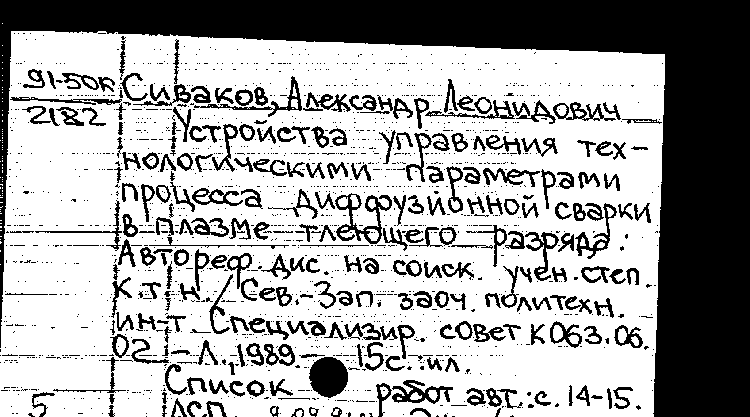 91-50к Сиваков, Александр Леонидович
2182
Устройства управления тех-
нологическими параметрами
процесса диффузионной сварки
в плазме тлеющего разряда:
Автореф. дис. на соиск. учен. степ.
к.т.н. / Сев.-Зап. заоч. политехн.
ин-т. Специализир. совет К 063.06.
02 - Л., 1989 - 15с.: ил.
Список работ авт.: с. 14-15.
5 ДСП